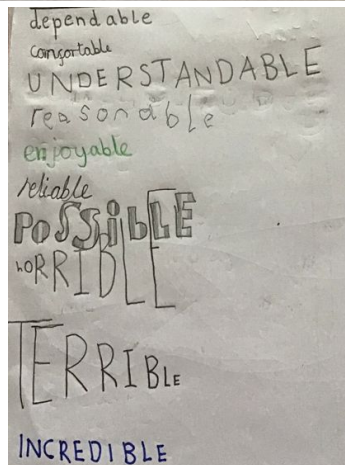 dependable
comfortable
UNDERSTANDABLE
reasonable
enjoyable
reliable
PoSSiBLE
hORRIBLE
TERRIBLE
INCREDIBLE